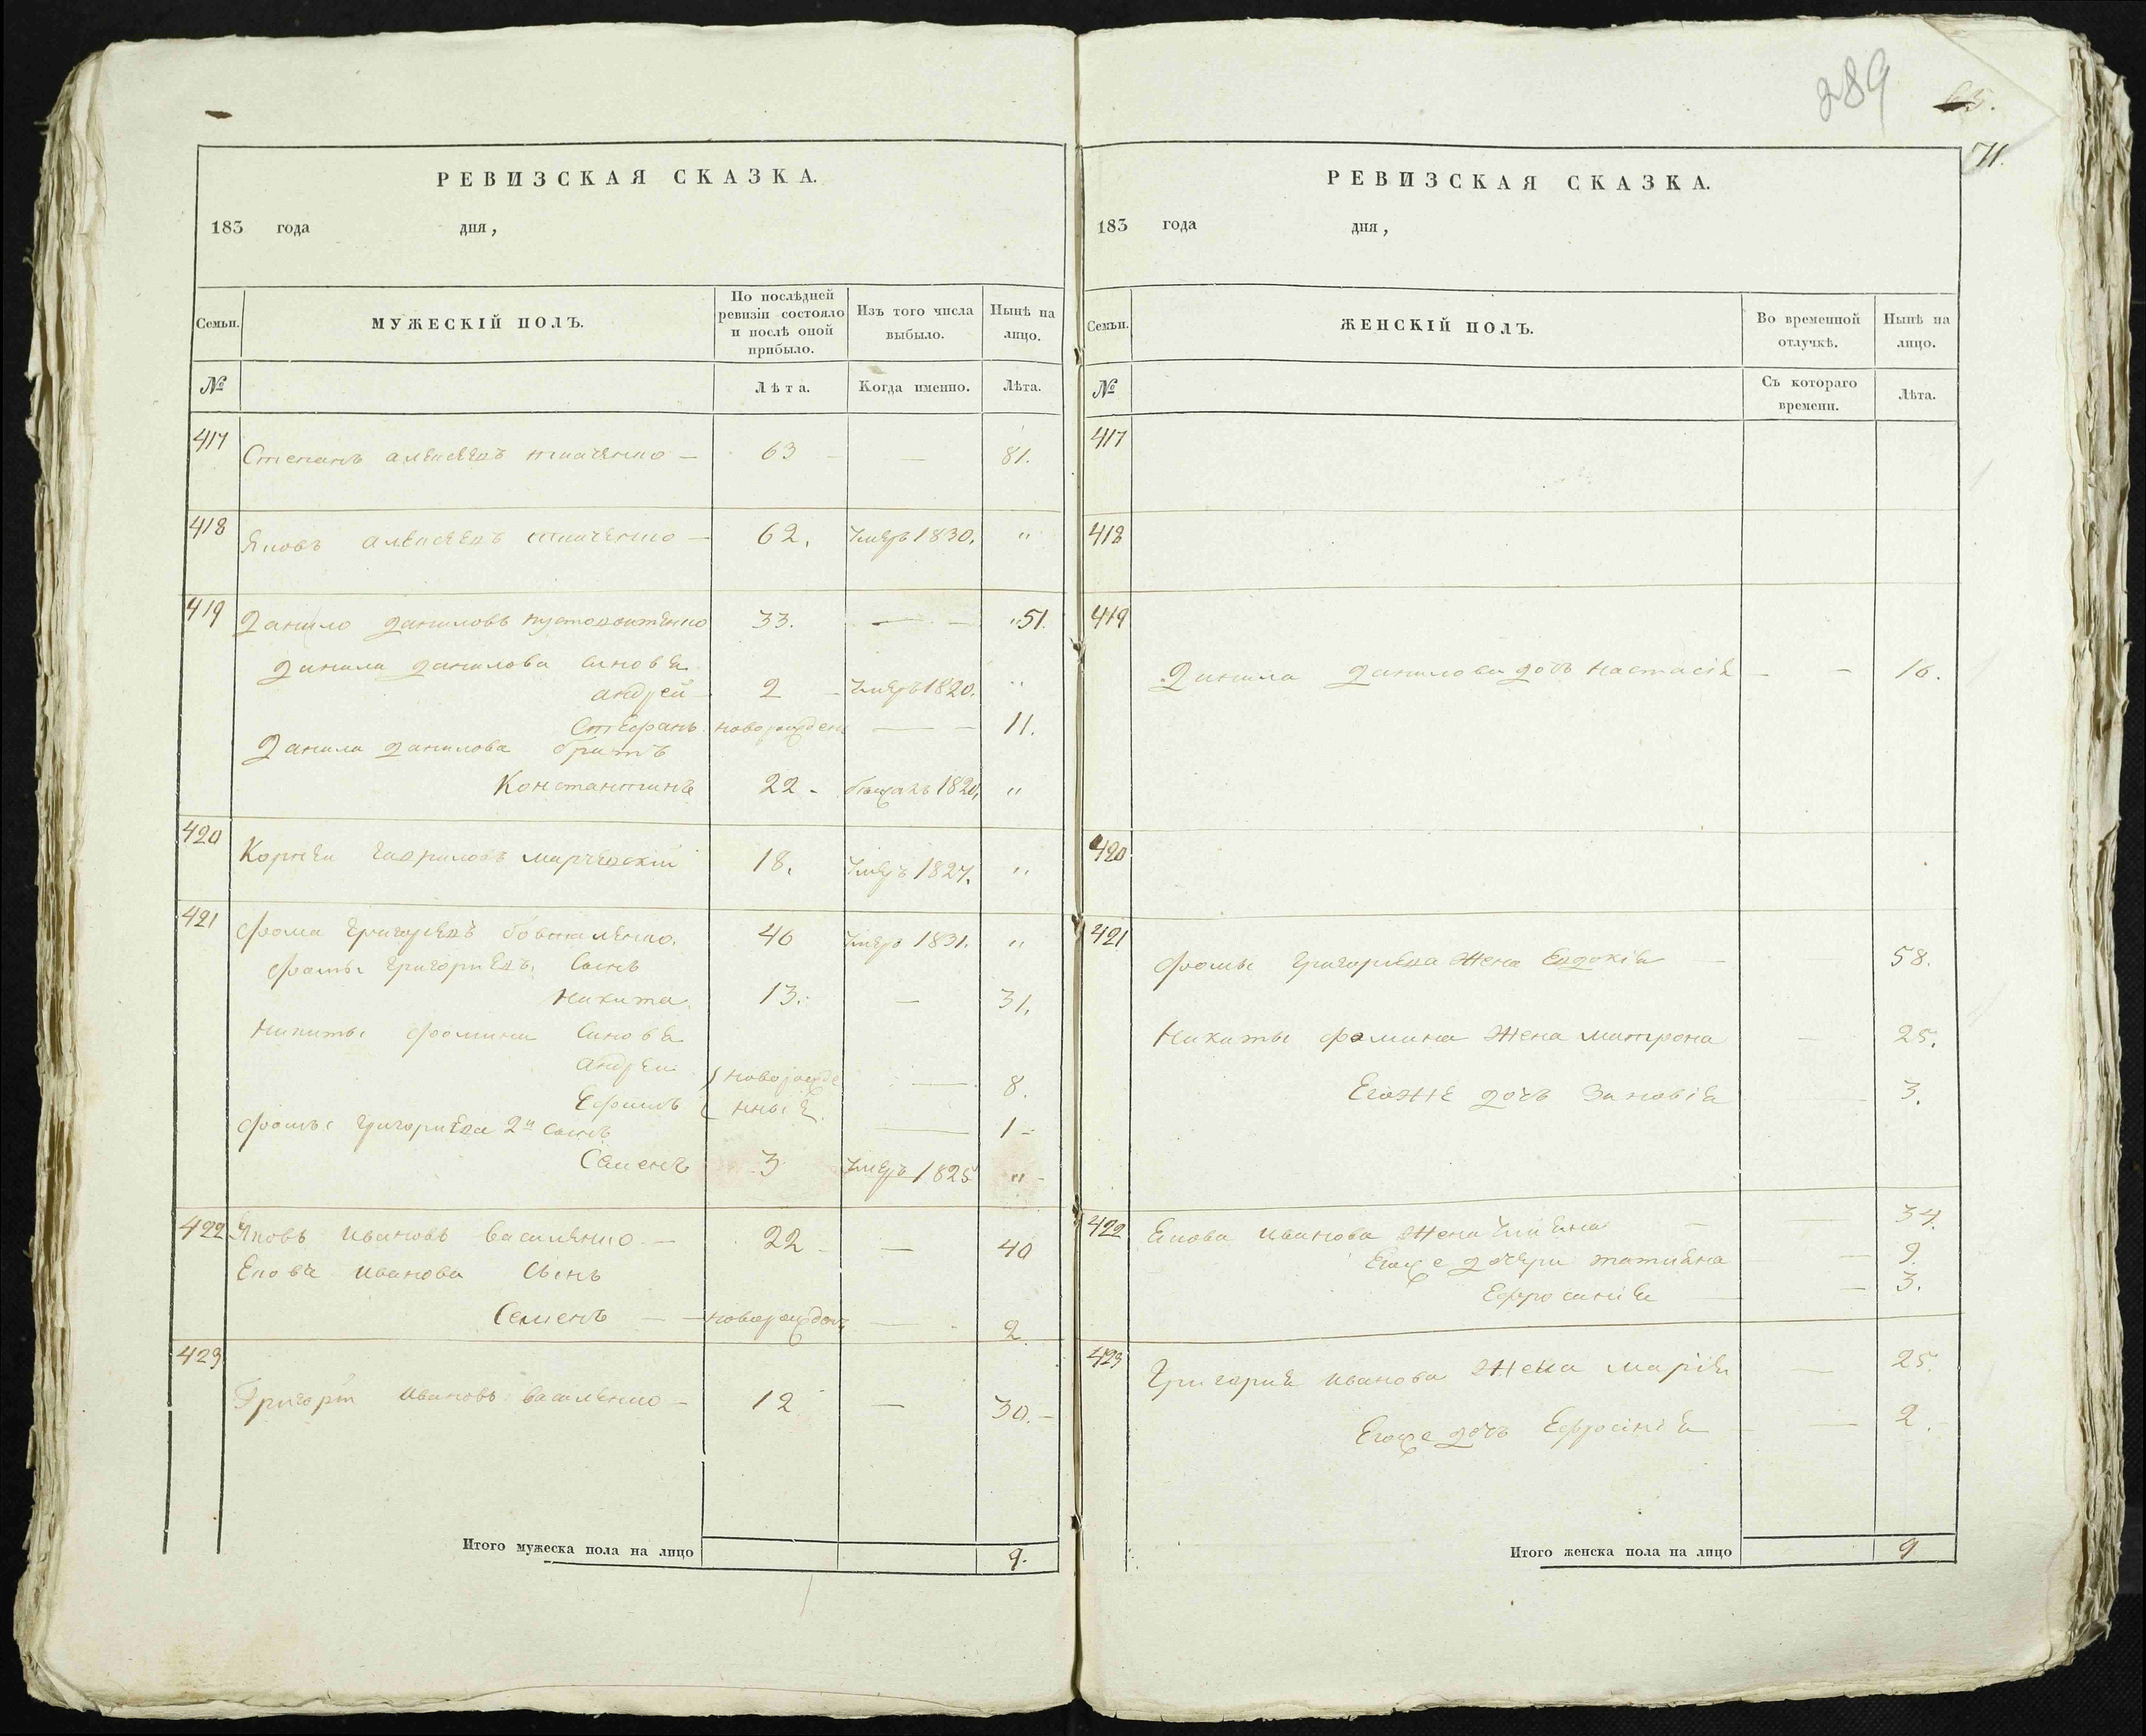 289
65.
71.
РЕВИЗСКАЯ СКАЗКА.
183 года дня,
Семьи. МУЖЕСКІЙ ПОЛЪ. По послѣдней ревизіи состояло и послѣ оной прибыло. Изъ того числа выбыло. Нынѣ на лицо.
№ Лѣта. Когда именно. Лѣта.
417 Степанъ Алексѣевъ 63 — 81.
418 Яковъ Алексѣевъ 62. Умеръ 1830. "
419 Данило Даниловъ 33. — 51.
Данила Данилова синовья
Андрей 2 Умеръ 1820. "
Стефанъ новорожденъ — 11.
Данила Данилова братъ
Константинъ 22 - 1820. "
420 Корней Гавриловъ Марчевскій 18. Умеръ 1827. "
421 Фома Григорьевъ Бовкаленко. 40 Умеръ 1831. "
Фомы Григорьевъ Сынъ
Никита. 13. — 31.
Никиты Фомина Синовья
Андрей новорожде — 8.
Ефимъ нные. — 1
Фомы Григорьева 2й Сынъ
Семенъ 3 Умеръ 1825 "
422 Яковъ Ивановъ Василенко — 22 — 40
Якова Иванова Сынъ
Семенъ — новорожденъ — 2.
423
Григорій Ивановъ Василенко 12 — 30.
Итого мужеска пола на лицо 9.
РЕВИЗСКАЯ СКАЗКА.
183 года дня,
Семьи. ЖЕНСКІЙ ПОЛЪ. Во временной отлучкѣ. Нынѣ на лицо.
№ Съ котораго времени. Лѣта.
417
418
419
Данила Данилова дочь Настасія — — 16.
420
421
Фомы Григорьева Жена Евдокія — 58.
Никиты Фомина Жена Матрона — 25.
Егоже дочь Зиновія 3.
422 Якова Иванова Жена — 34.
Егоже дочери Татияна — 9.
Ефросинія — 3.
423 Григорія Иванова Жена Марія — 25.
Егоже дочь Ефросінія — 2.
Итого женска пола на лицо 9